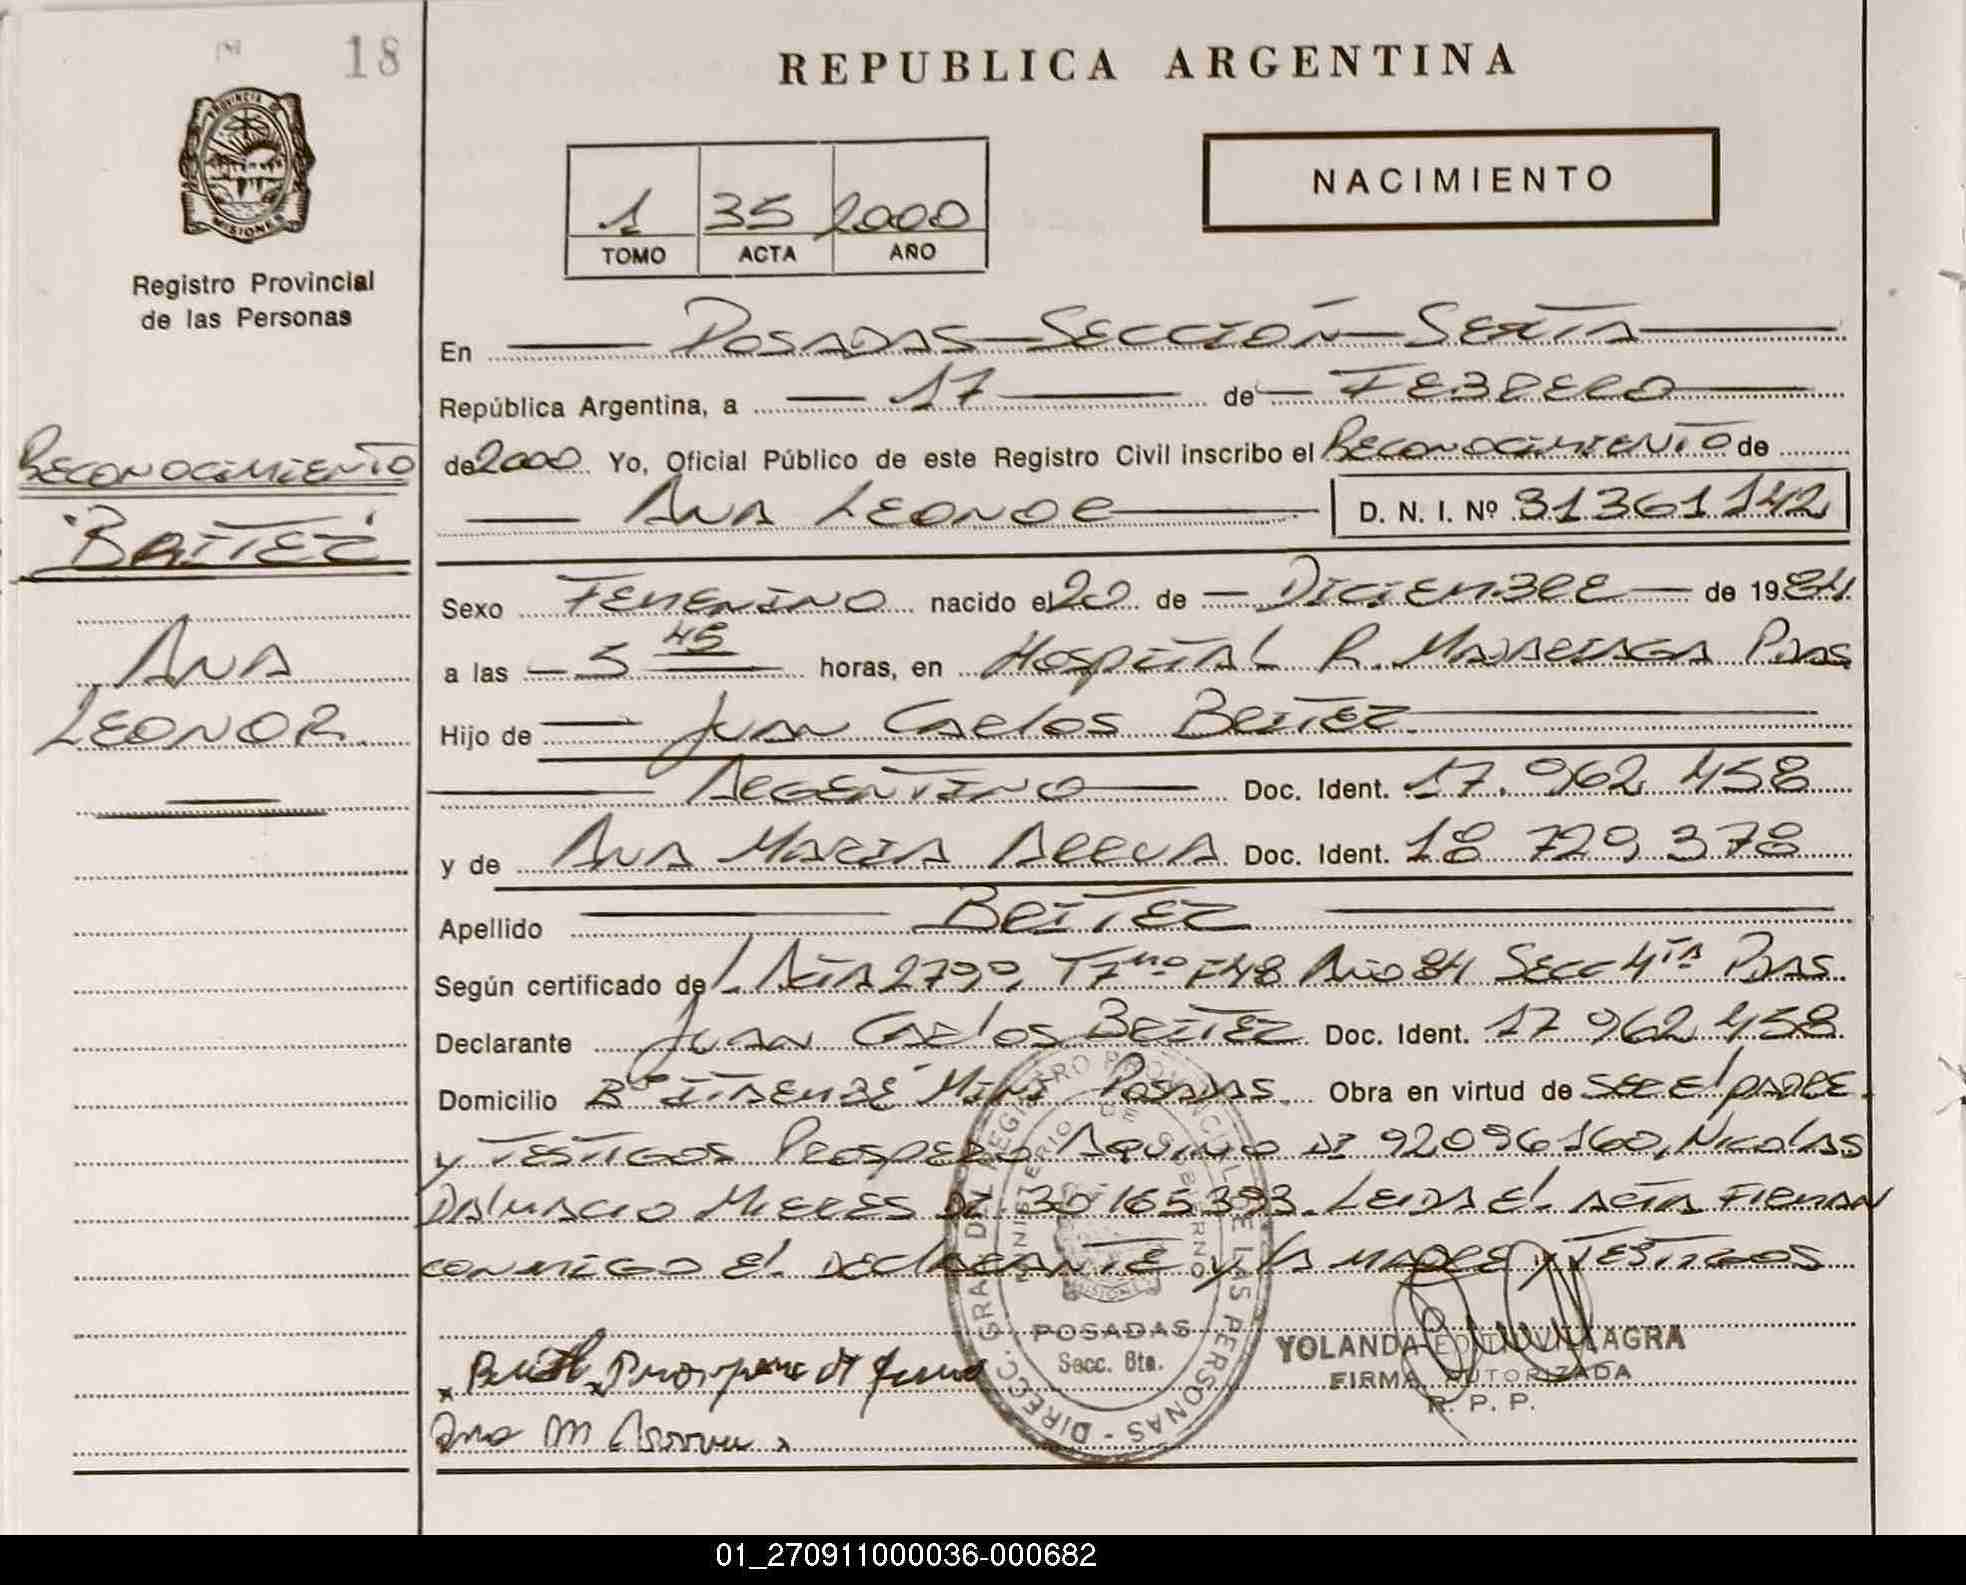 18
REPUBLICA ARGENTINA
PROVINCIA DE MISIONES
NACIMIENTO
1 35 2000
TOMO ACTA AÑO
Registro Provincial
de las Personas
En Posadas Sección Sexta
República Argentina, a 17 de Febrero
Reconocimiento
de 2000 Yo, Oficial Público de este Registro Civil inscribo el Reconocimiento de
Ana Leonor D. N. I. Nº 31361142
"Beitez"
Sexo Femenino nacido el 20 de Diciembre de 1984
Ana
a las 5 45 horas, en Hospital R. Madariaga Pdas
Leonor
Hijo de Juan Carlos Beitez
Argentino Doc. Ident. 17.962 458
y de Ana Maria Arrua Doc. Ident. 18 729 378
Apellido Beitez
Según certificado de Acta 2799, Año 84 Secc 4ta Pdas
Declarante Juan Carlos Beitez Doc. Ident. 17 962 458
Domicilio Bº Itaembé Mini Posadas Obra en virtud de ser el padre
y testigos Prospero Aquino DI 92096160, Nicolas
Dalmacio Mieres DI 30165393. Leida el acta firman
conmigo el declarante y la madre y testigos
DIRECC. GRAL. DEL REGISTRO PROVINCIAL DE LAS PERSONAS
MINISTERIO DE GOBIERNO
MISIONES
POSADAS
Secc. 6ta.
YOLANDA VILLAGRA
FIRMA AUTORIZADA
R. P. P.
Ana M Arrua
01_270911000036-000682